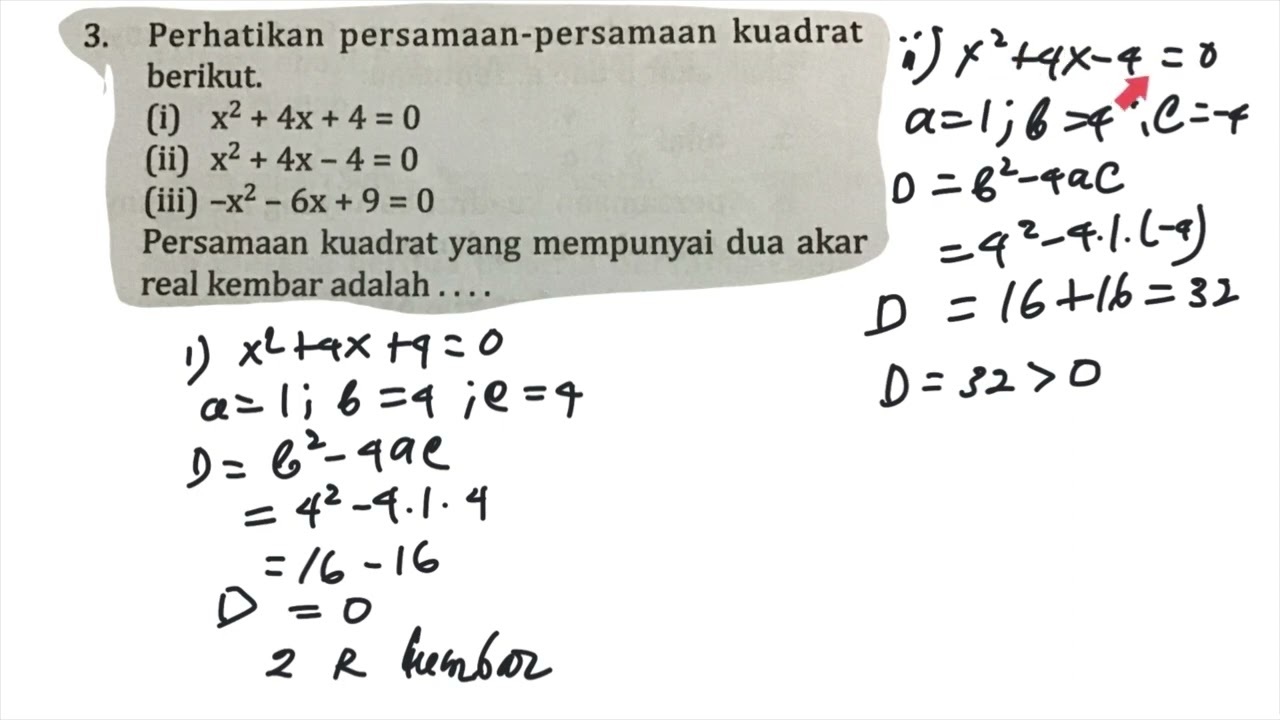 3. Perhatikan persamaan-persamaan kuadrat
berikut.
(i) x² + 4x + 4 = 0
(ii) x² + 4x – 4 = 0
(iii) –x² – 6x + 9 = 0
Persamaan kuadrat yang mempunyai dua akar
real kembar adalah . . . .
1) x² + 4x + 4 = 0
a = 1 ; b = 4 ; c = 4
D = b² - 4ac
= 4² - 4 . 1 . 4
= 16 - 16
D = 0
2 R kembar
ii) x² + 4x - 4 = 0
a = 1 ; b = 4 ; c = -4
D = b² - 4ac
= 4² - 4 . 1 . (-4)
D = 16 + 16 = 32
D = 32 > 0